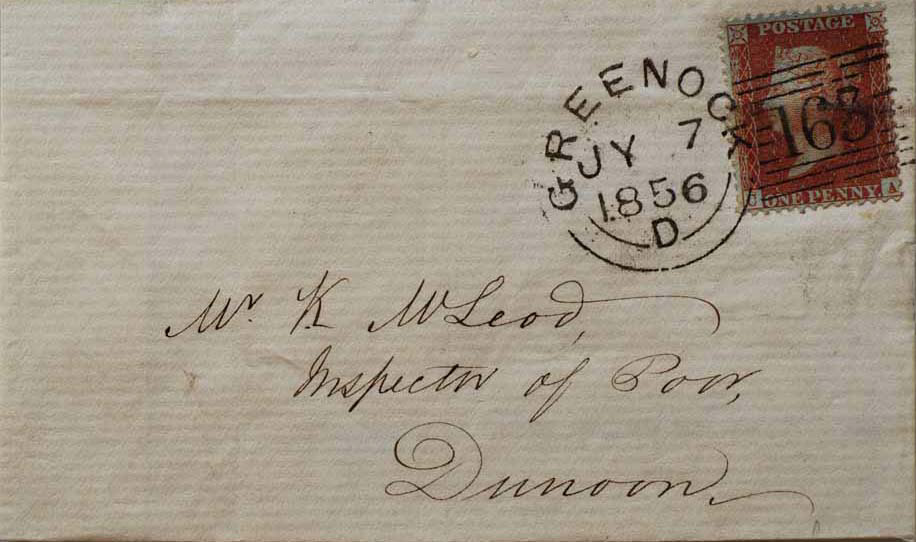 POSTAGE
163
ONE PENNY
A
GREENOCK
JY 7
1856
D
Mr. K McLeod,
Inspector of Poor,
Dunoon